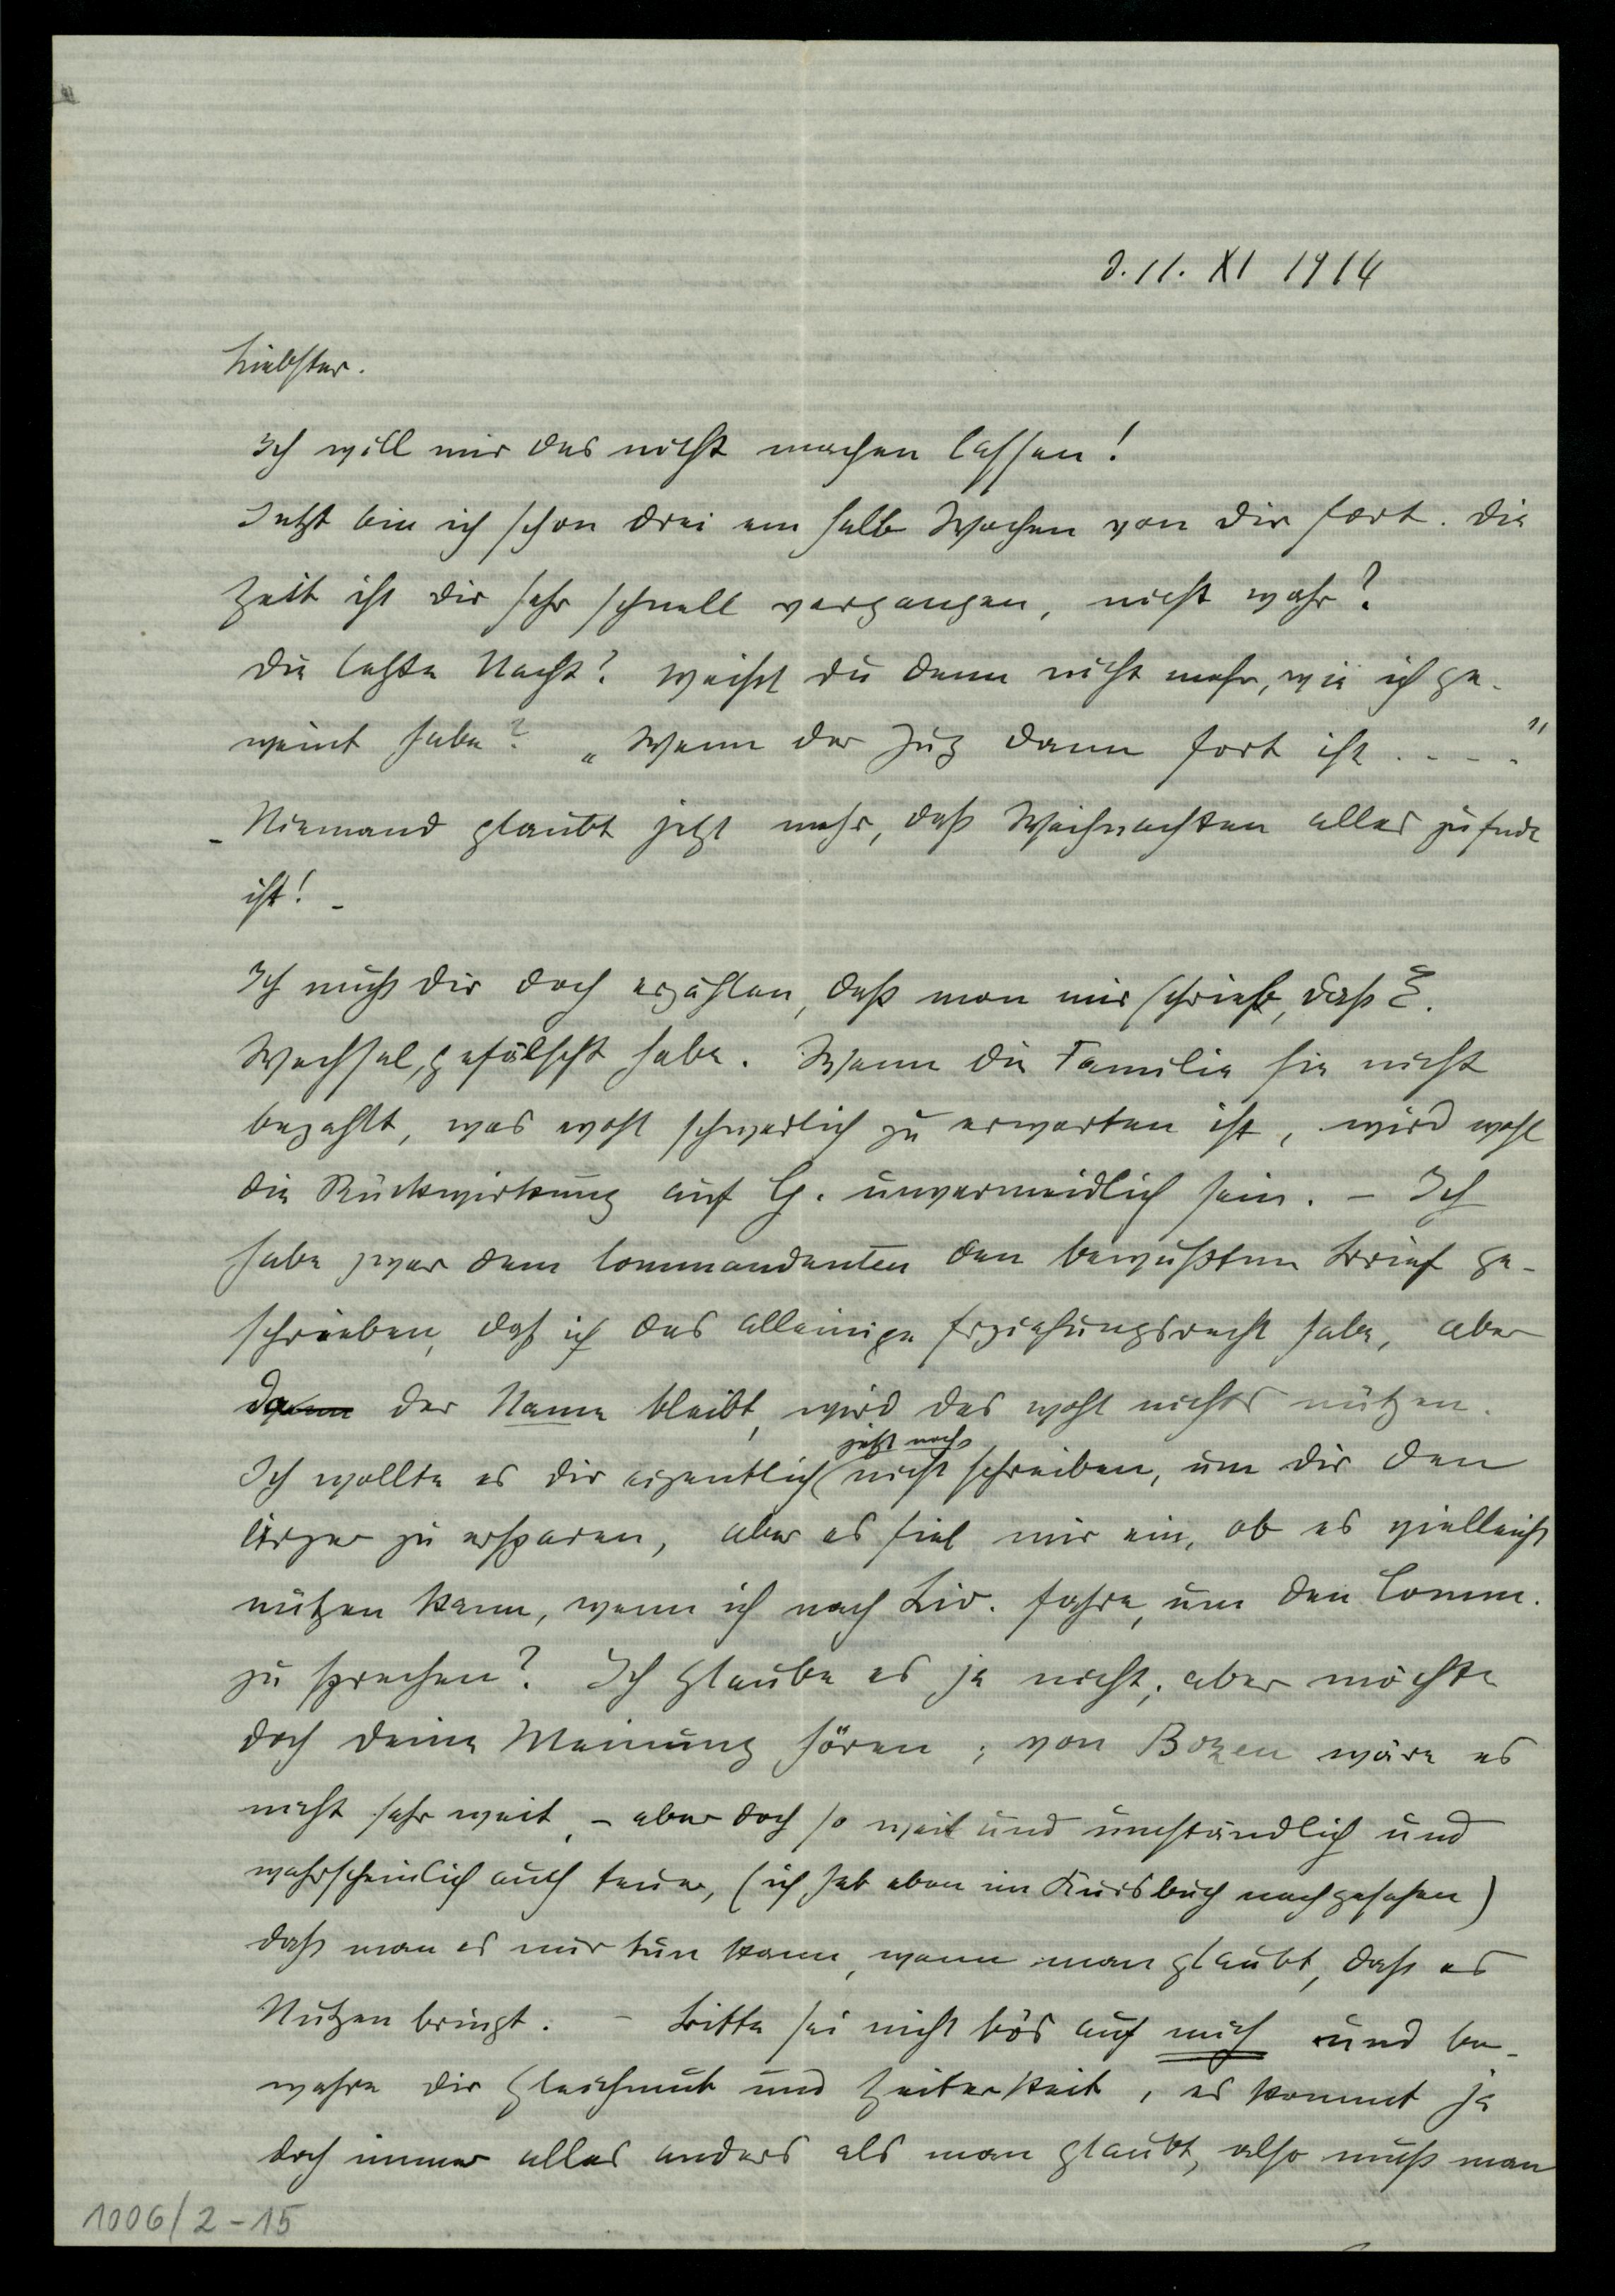 d. 11. XI 1914
Liebster.
Ich will mir das nicht machen lassen!
Jetzt bin ich schon drei ein halb Wochen von dir fort. Die
Zeit ist dir sehr schnell vergangen, nicht wahr?
Die letzte Nacht? Weißt du denn nicht mehr, wie ich ge-
weint habe? „Wenn der Zug dann fort ist . - - ."
- Niemand glaubt jetzt mehr, daß Weihnachten alles zu Ende
ist! -
Ich muß dir doch erzählen, daß man mir schrieb, daß E.
Wechsel, gefälscht habe. Wenn die Familie sie nicht
bezahlt, was wohl schwerlich zu erwarten ist, wird wohl
die Rückwirkung auf G. unvermeidlich sein. – Ich
habe zwar dem Commandanten den bewußten Brief ge-
schrieben, daß ich das alleinige Erziehungsrecht habe, aber
der Name bleibt, wird das wohl nichts nützen.
jetzt noch
Ich wollte es dir eigentlich nicht schreiben, um dir den
Ärger zu ersparen, aber es fiel mir ein, ob es vielleicht
nützen kann, wenn ich nach Liv. fahre, um den Comm.
zu sprechen? Ich glaube es ja nicht, aber möchte
doch deine Meinung hören; von Bozen wäre es
nicht sehr weit, – aber doch so weit und umständlich und
wahrscheinlich auch teuer, (ich hab eben im Kursbuch nachgesehen)
daß man es nur tun kann, wenn man glaubt, daß es
Nutzen bringt. – Bitte sei nicht bös auf mich und be-
wahre dir Gleichmut und Heiterkeit, es kommt ja
doch immer alles anders als man glaubt, also muß man
1006/2-15